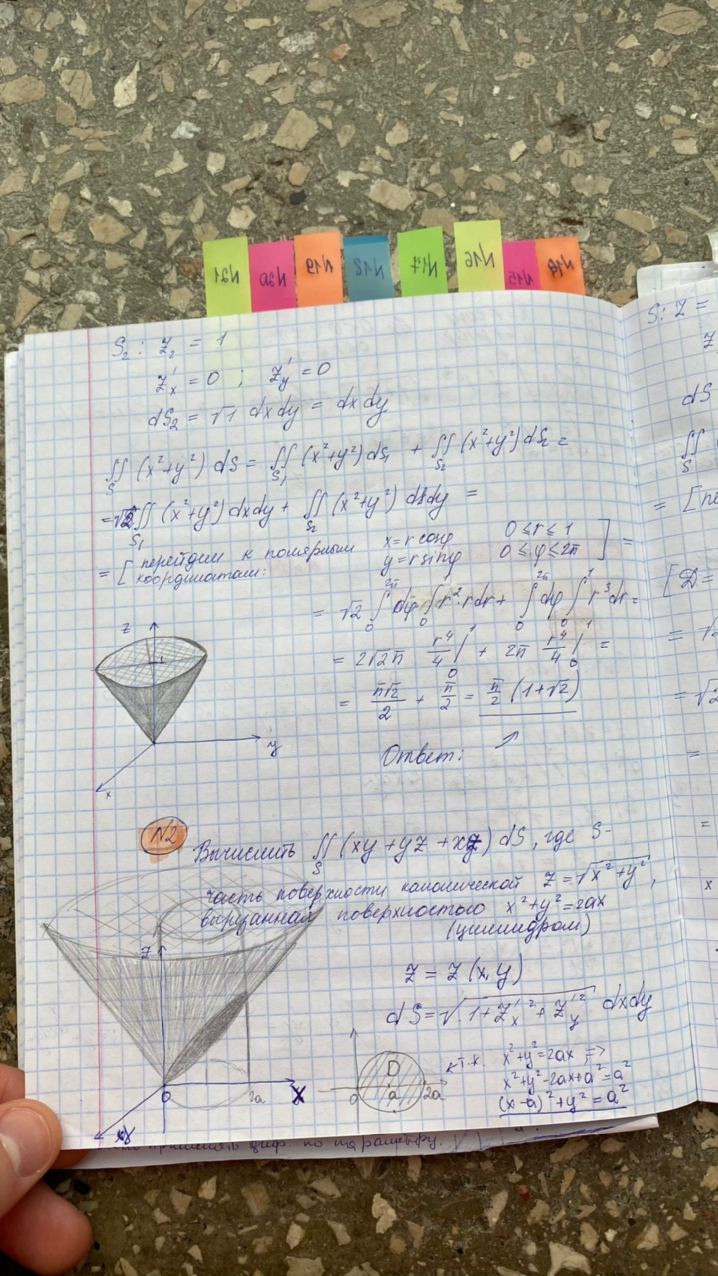 N21 N20 N19 N18 N17 N16 N15 N14
S₂: z₂ = 1
z'ₓ = 0 ; z'ᵧ = 0
dS₂ = √1 dxdy = dxdy
∬_S (x²+y²) dS = ∬_S₁ (x²+y²) dS₁ + ∬_S₂ (x²+y²) dS₂ =
= √2 ∬_S₁ (x²+y²) dxdy + ∬_S₂ (x²+y²) dxdy =
= [ перейдем к полярным координатам: x = r cosφ y = r sinφ 0 ≤ r ≤ 1 0 ≤ φ ≤ 2π ] =
= √2 ∫₀^2π dφ ∫₀¹ r²·r dr + ∫₀^2π dφ ∫₀¹ r³ dr =
= 2√2π r⁴/4 |₀¹ + 2π r⁴/4 |₀¹ =
= π√2/2 + π/2 = π/2 (1+√2)
Ответ:
z
1
y
x
N2 Вычислить ∬_S (xy + yz + xz) dS, где S-
часть поверхности канонической z = √(x²+y²),
вырезанная поверхностью x²+y² = 2ax
(цилиндром)
z = z (x, y)
dS = √(1 + z'ₓ² + z'ᵧ²) dxdy
z
0
2a
x
y
D
0
a
2a
т.к. x²+y² = 2ax =>
x²+y²-2ax+a² = a²
(x-a)²+y² = a²
S: z =
z
dS
∬_S
= [пе
[D =
= √2
= √2
=
=
x